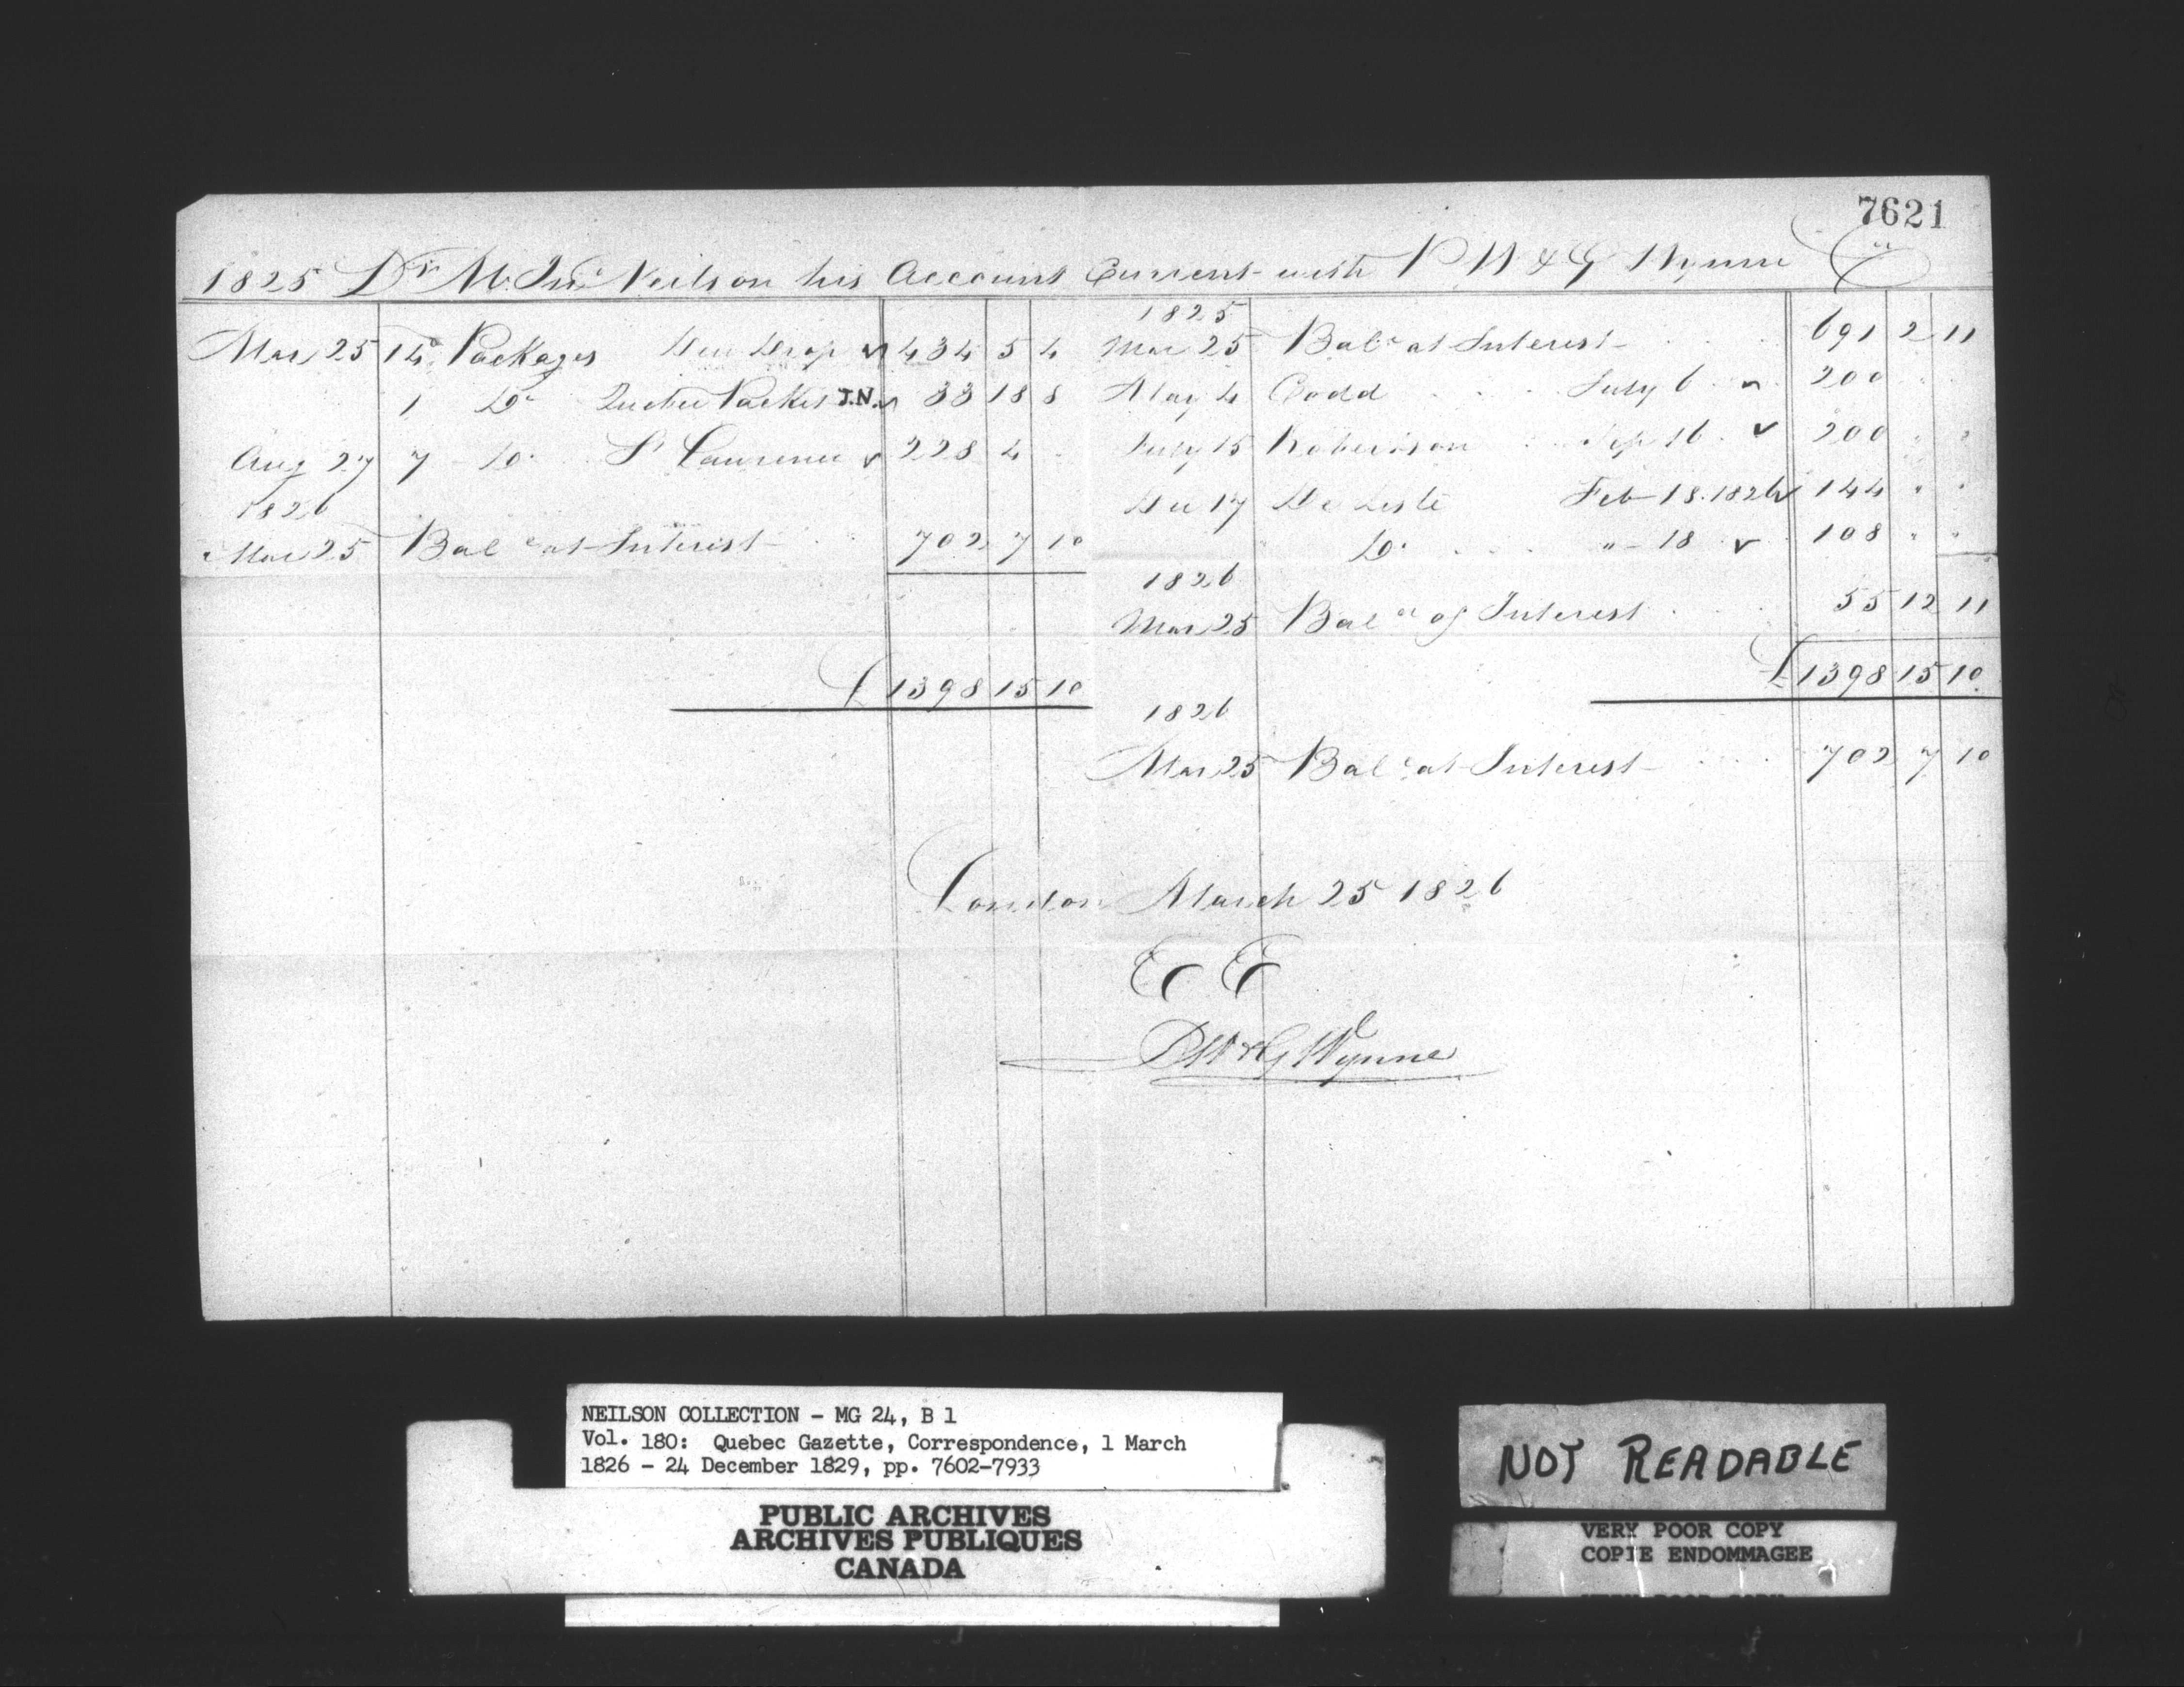 7621
1825 Dr Mr Jno Neilson his Account Current with P W & G Wynne Cr
Mar 25 14 Packages Dew Drop 434 5 4
1 Do Quebec Packet J.N. 33 18 8
Aug 27 7 Do St Lawrence 228 4
1826
Mar 25 Balce at Interest 702 7 10
£1398 15 10
1825
Mar 25 Balce at Interest 691 2 11
May 4 Codd July 6 200 " "
July 15 Robertson Sep 16 200 " "
Dec 17 De Lisle Feb 18.1826 144 " "
" Do " 18 108 " "
1826
Mar 25 Balce of Interest 55 12 11
£1398 15 10
1826
Mar 25 Balce at Interest 702 7 10
London March 25 1826
E E
P W & G Wynne
NEILSON COLLECTION - MG 24, B 1
Vol. 180: Quebec Gazette, Correspondence, 1 March
1826 - 24 December 1829, pp. 7602-7933
PUBLIC ARCHIVES
ARCHIVES PUBLIQUES
CANADA
NOT READABLE
VERY POOR COPY
COPIE ENDOMMAGEE